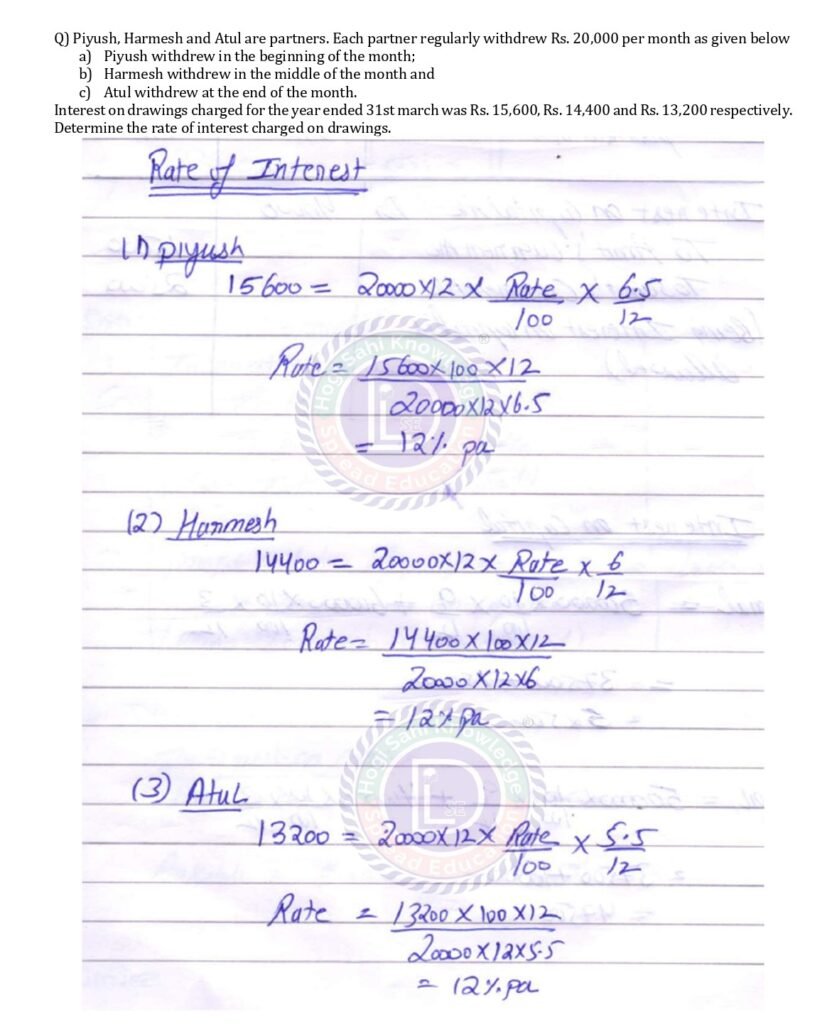 Q) Piyush, Harmesh and Atul are partners. Each partner regularly withdrew Rs. 20,000 per month as given below
a) Piyush withdrew in the beginning of the month;
b) Harmesh withdrew in the middle of the month and
c) Atul withdrew at the end of the month.
Interest on drawings charged for the year ended 31st march was Rs. 15,600, Rs. 14,400 and Rs. 13,200 respectively.
Determine the rate of interest charged on drawings.
Rate of Interest
(1) piyush
15600 = 20000 X 12 X Rate/100 X 6.5/12
Rate = 15600 X 100 X 12
20000 X 12 X 6.5
= 12% pa
(2) Harmesh
14400 = 20000 X 12 X Rate/100 X 6/12
Rate = 14400 X 100 X 12
20000 X 12 X 6
= 12% pa
(3) Atul
13200 = 20000 X 12 X Rate/100 X 5.5/12
Rate = 13200 X 100 X 12
20000 X 12 X 5.5
= 12% pa
Hogi Sahi Knowledge
Spread Education